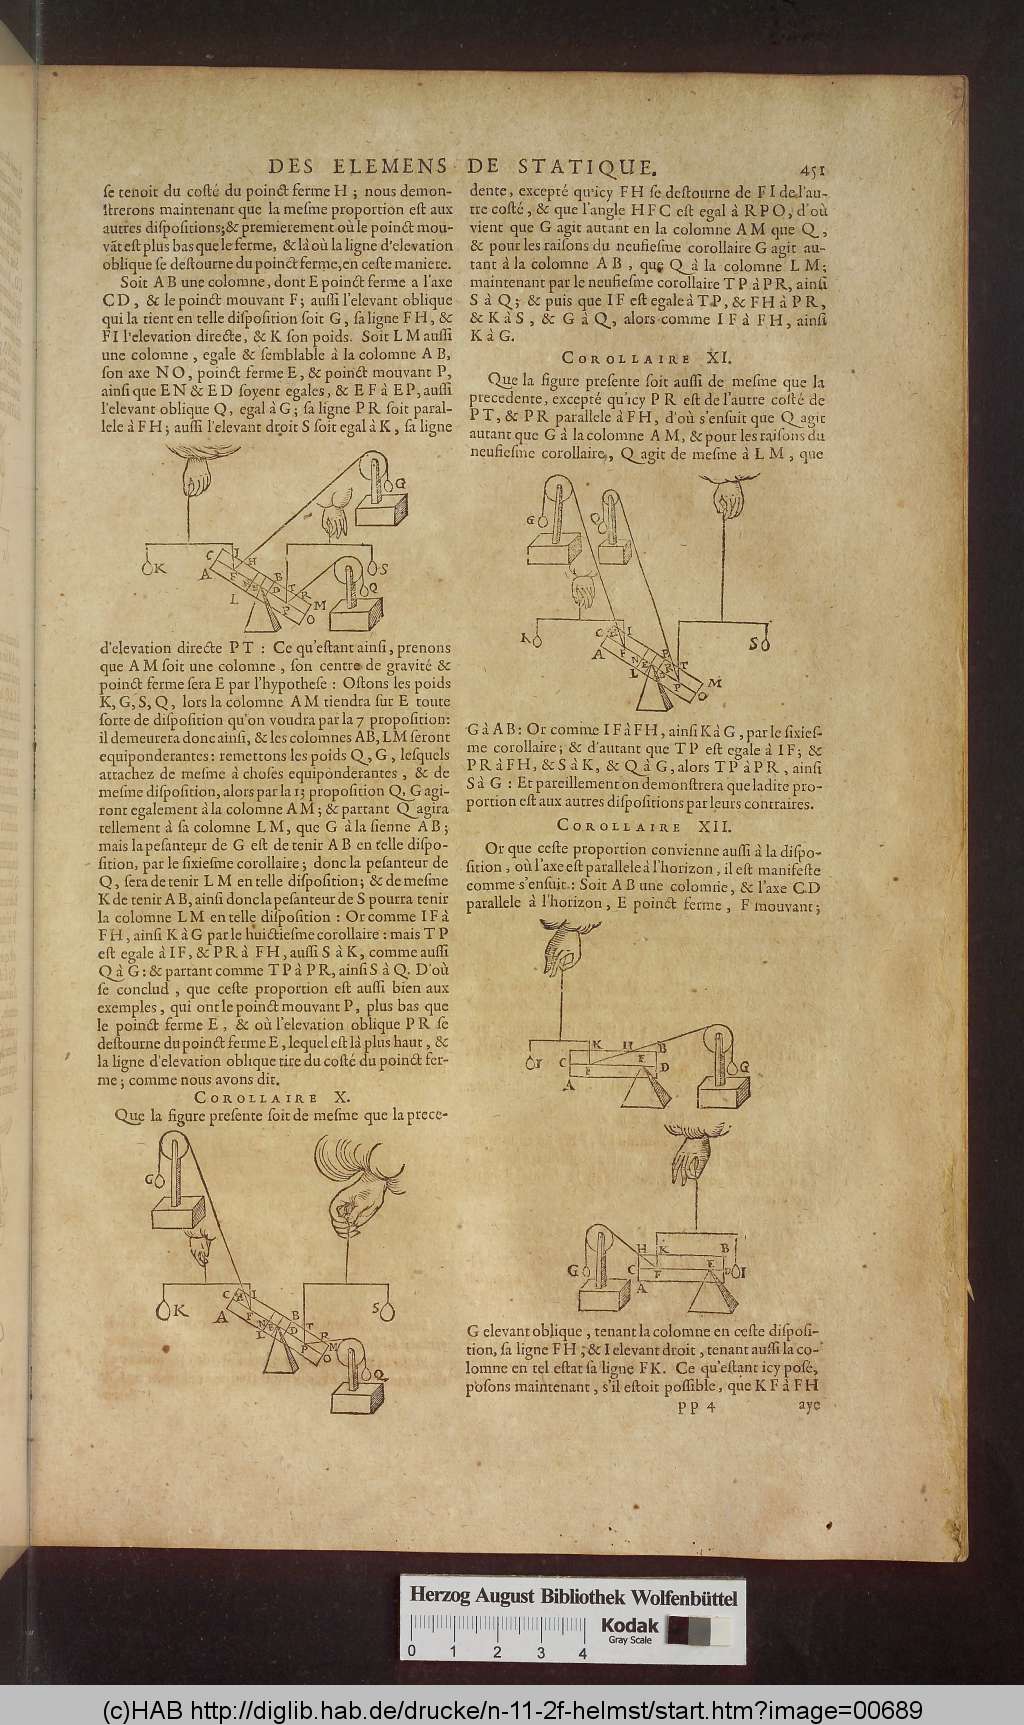 DES ELEMENS DE STATIQUE. 451
ſe tenoit du coſté du poinct ferme H ; nous demon-
ſtrerons maintenant que la meſme proportion eſt aux
autres diſpoſitions;& premierement où le poinct mou-
vãt eſt plus bas que le ferme, & là où la ligne d'elevation
oblique ſe deſtourne du poinct ferme, en ceſte maniere.
Soit A B une colomne, dont E poinct ferme a l'axe
C D, & le poinct mouvant F; auſſi l'elevant oblique
qui la tient en telle diſpoſition ſoit G, ſa ligne F H, &
F I l'elevation directe, & K ſon poids. Soit L M auſſi
une colomne, egale & ſemblable à la colomne A B,
ſon axe N O, poinct ferme E, & poinct mouvant P,
ainſi que E N & E D ſoyent egales, & E F à E P, auſſi
l'elevant oblique Q, egal à G; ſa ligne P R ſoit paral-
lele à F H; auſſi l'elevant droit S ſoit egal à K, ſa ligne
G
K
C
I
H
A
F
N
E
B
D
T
R
S
Q
L
P
M
O
d'elevation directe P T : Ce qu'eſtant ainſi, prenons
que A M ſoit une colomne, ſon centre de gravité &
poinct ferme ſera E par l'hypotheſe : Oſtons les poids
K, G, S, Q, lors la colomne A M tiendra ſur E toute
ſorte de diſpoſition qu'on voudra par la 7 propoſition:
il demeurera donc ainſi, & les colomnes AB, LM ſeront
equiponderantes: remettons les poids Q, G, leſquels
attachez de meſme à choſes equiponderantes, & de
meſme diſpoſition, alors par la 13 propoſition Q, G agi-
ront egalement à la colomne A M; & partant Q agira
tellement à ſa colomne L M, que G à la ſienne A B;
mais la peſanteur de G eſt de tenir A B en telle diſpo-
ſition, par le ſixieſme corollaire; donc la peſanteur de
Q, ſera de tenir L M en telle diſpoſition; & de meſme
K de tenir A B, ainſi donc la peſanteur de S pourra tenir
la colomne L M en telle diſpoſition : Or comme I F à
F H, ainſi K à G par le huictieſme corollaire : mais T P
eſt egale à I F, & P R à F H, auſſi S à K, comme auſſi
Q à G: & partant comme T P à P R, ainſi S à Q. D'où
ſe conclud, que ceſte proportion eſt auſſi bien aux
exemples, qui ont le poinct mouvant P, plus bas que
le poinct ferme E, & où l'elevation oblique P R ſe
deſtourne du poinct ferme E, lequel eſt là plus haut, &
la ligne d'elevation oblique tire du coſté du poinct fer-
me; comme nous avons dit.
COROLLAIRE X.
Que la figure preſente ſoit de meſme que la prece-
G
K
S
C
H
I
A
F
N
E
B
D
T
R
L
P
M
O
Q
dente, excepté qu'icy F H ſe deſtourne de F I de l'au-
tre coſté, & que l'angle H F C eſt egal à R P O, d'où
vient que G agit autant en la colomne A M que Q,
& pour les raiſons du neufieſme corollaire G agit au-
tant à la colomne A B, que Q à la colomne L M;
maintenant par le neufieſme corollaire T P à P R, ainſi
S à Q; & puis que I F eſt egale à T P, & F H à P R,
& K à S, & G à Q, alors comme I F à F H, ainſi
K à G.
COROLLAIRE XI.
Que la figure preſente ſoit auſſi de meſme que la
precedente, excepté qu'icy P R eſt de l'autre coſté de
P T, & P R parallele à F H, d'où s'enſuit que Q agit
autant que G à la colomne A M, & pour les raiſons du
neufieſme corollaire, Q agit de meſme à L M, que
G
Q
K
S
C
H
I
A
F
N
E
B
D
R
T
L
P
M
O
G à A B: Or comme I F à F H, ainſi K à G, par le ſixieſ-
me corollaire; & d'autant que T P eſt egale à I F; &
P R à F H, & S à K, & Q à G, alors T P à P R, ainſi
S à G : Et pareillement on demonſtrera que ladite pro-
portion eſt aux autres diſpoſitions par leurs contraires.
COROLLAIRE XII.
Or que ceſte proportion convienne auſſi à la diſpo-
ſition, où l'axe eſt parallele à l'horizon, il eſt manifeſte
comme s'enſuit: Soit A B une colomne, & l'axe C D
parallele à l'horizon, E poinct ferme, F mouvant;
I
K
H
B
C
E
D
F
A
G
H
K
B
G
C
E
F
D
I
A
G elevant oblique, tenant la colomne en ceſte diſpoſi-
tion, ſa ligne F H; & I elevant droit, tenant auſſi la co-
lomne en tel eſtat ſa ligne F K. Ce qu'eſtant icy poſé,
poſons maintenant, s'il eſtoit poſſible, que K F à F H
pp 4 aye
Herzog August Bibliothek Wolfenbüttel
0 1 2 3 4
Kodak
Gray Scale
(c)HAB http://diglib.hab.de/drucke/n-11-2f-helmst/start.htm?image=00689